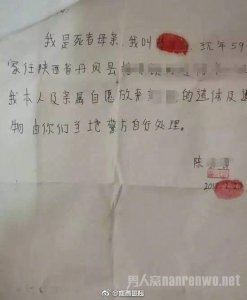 我是死者母亲,我叫 现年59
家住陕西省丹凤县
我本人及亲属自愿放弃 的遗体及遗
物 由你们当地警方自行处理。
陈
@西西里起
男人窝nanrenwo.net